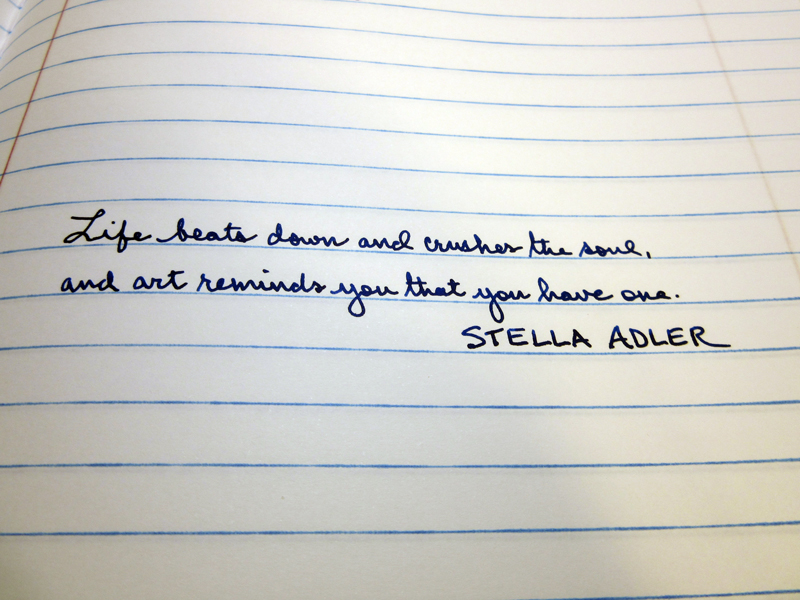 Life beats down and crushes the soul,
and art reminds you that you have one.
STELLA ADLER